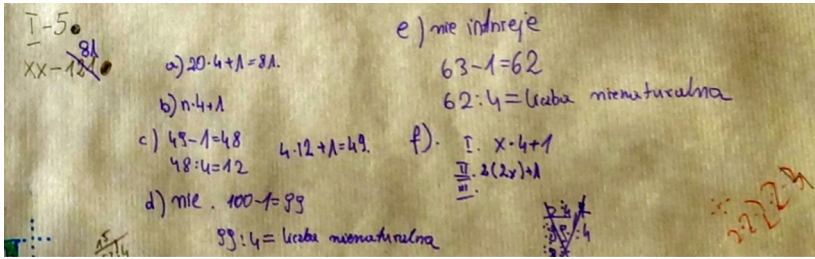 I-5
81
XX-121
a) 20·4+1=81.
b) n·4+1
c) 49-1=48 4·12+1=49.
48:4=12
d) nie. 100-1=99
99:4= liczba nienaturalna
e) nie istnieje
63-1=62
62:4= liczba nienaturalna
f). I. x·4+1
II. 2(2x)+1
III.